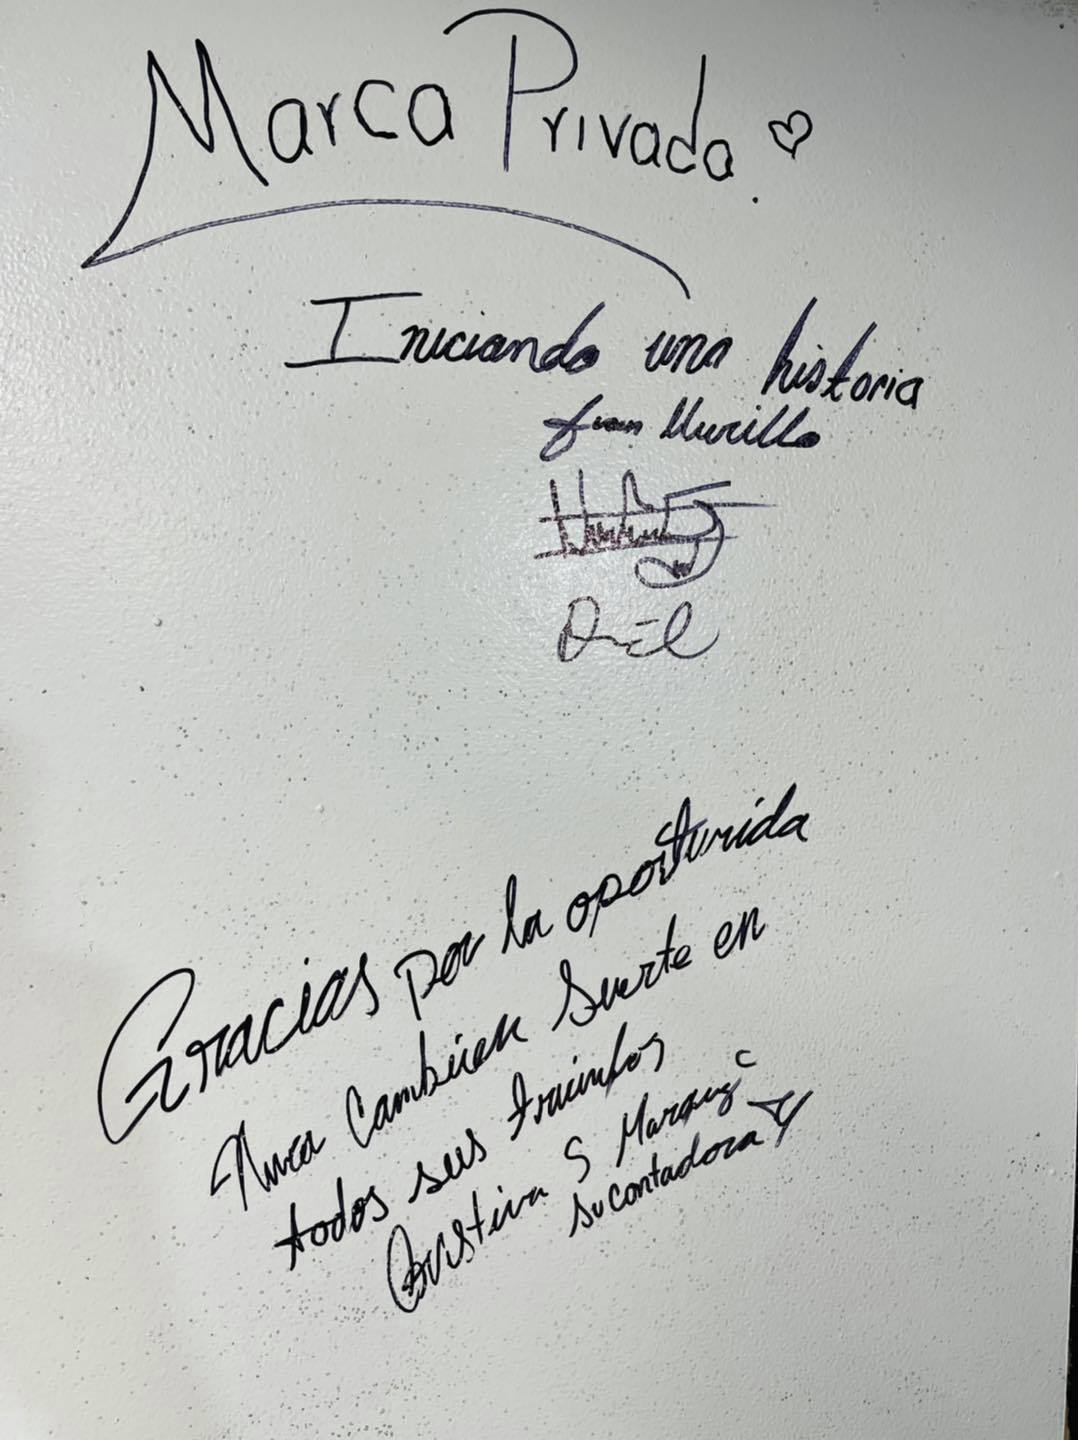 Marca Privada.
Iniciando una historia
Juan Murillo
Gracias por la oportunida
Nunca Cambien Suerte en
todos sus triunfos
Cristina S Marquez C
su contadora